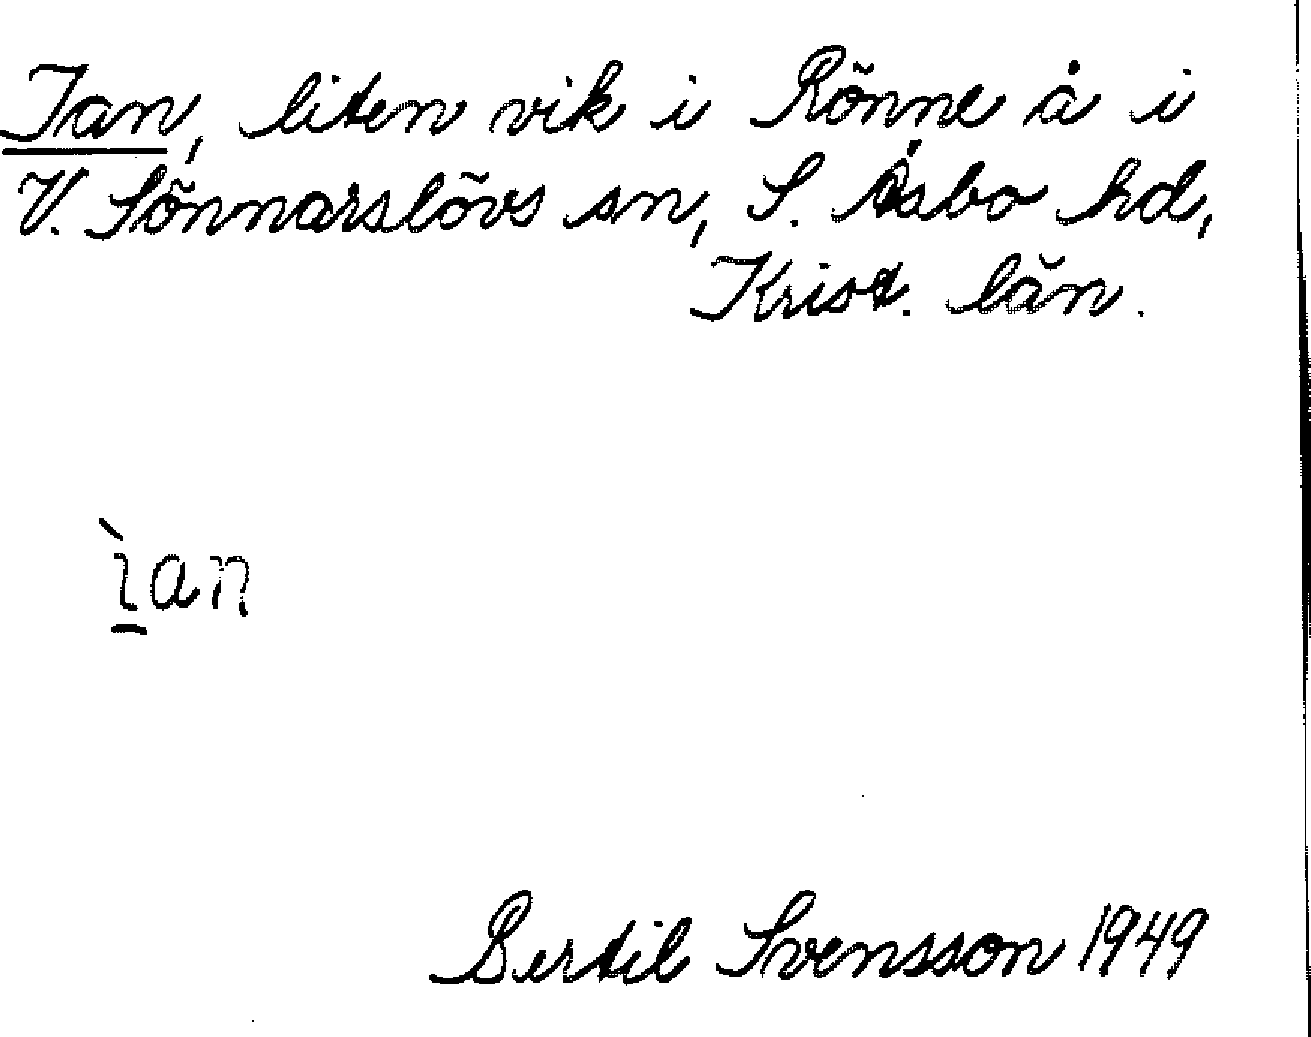 Ian, liten vik i Rönne å i
V. Sönnarslövs sn, S. Åsbo hd,
Krist. län.
ìan
Bertil Svensson 1949